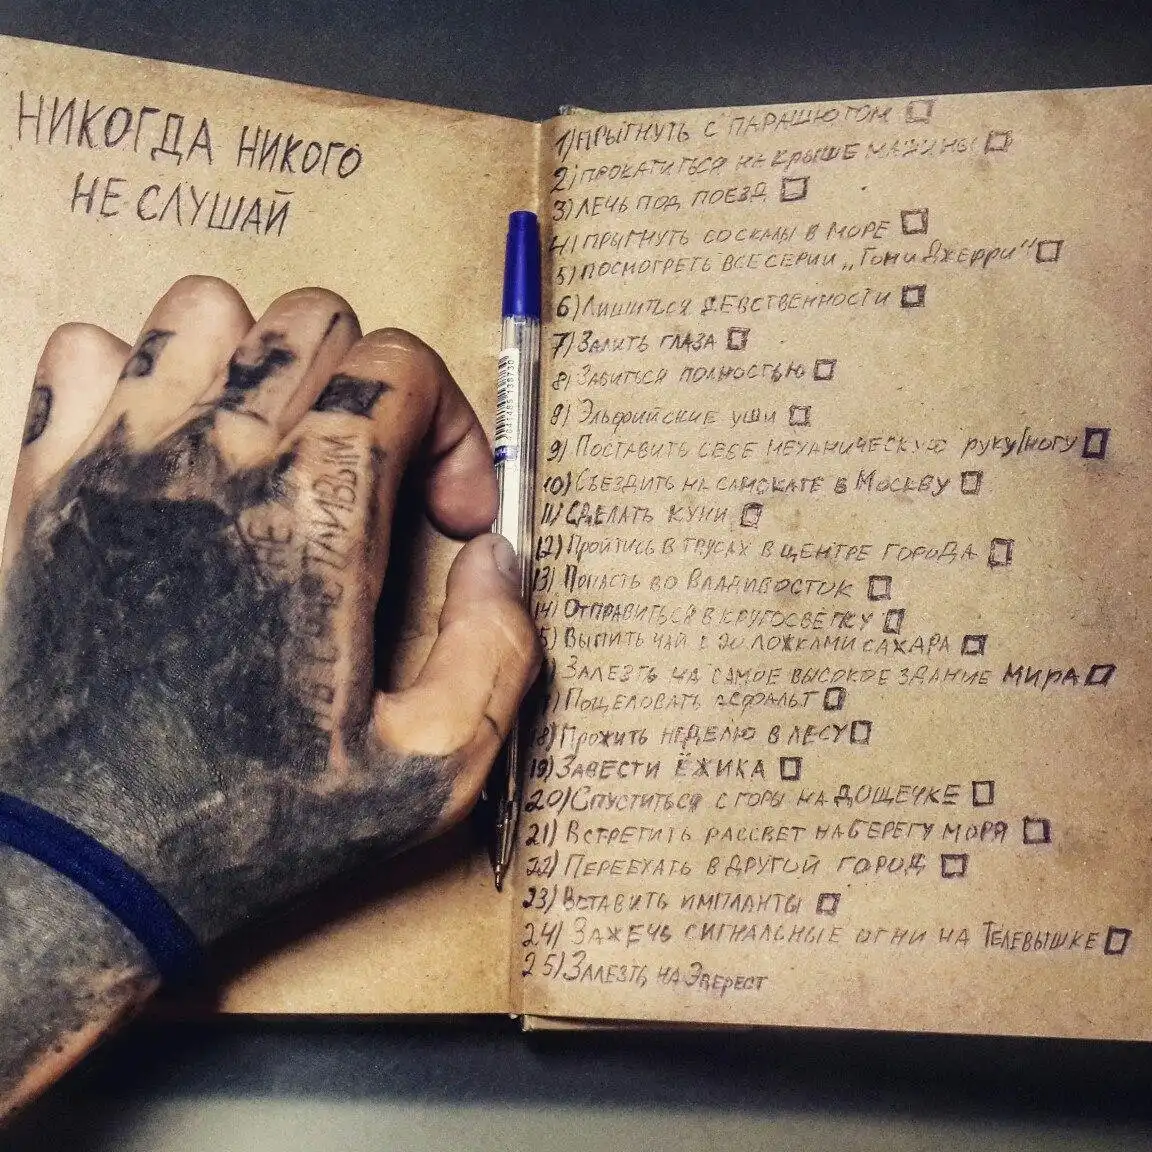 НИКОГДА НИКОГО
НЕ СЛУШАЙ
1) ПРЫГНУТЬ С ПАРАШЮТОМ
2) ПРОКАТИТЬСЯ НА КРЫШЕ МАШИНЫ
3) ЛЕЧЬ ПОД ПОЕЗД
4) ПРЫГНУТЬ СО СКАЛЫ В МОРЕ
5) ПОСМОТРЕТЬ ВСЕ СЕРИИ „Том и Джерри“
6) Лишиться девственности
7) Залить глаза
8) Забиться полностью
8) Эльфийские уши
9) Поставить себе механическую руку/ногу
10) Съездить на самокате в Москву
11) Сделать куни
12) Пройтись в трусах в центре города
13) Попасть во Владивосток
14) Отправиться в кругосветку
5) Выпить чай с 20 ложками сахара
Залезть на самое высокое здание мира
) Поцеловать асфальт
18) Прожить неделю в лесу
19) Завести ёжика
20) Спуститься с горы на дощечке
21) Встретить рассвет на берегу моря
22) Переехать в другой город
23) Вставить импланты
24) Зажечь сигнальные огни на телевышке
25) Залезть на Эверест
НЕ
СЧАСТЛИВЫМ